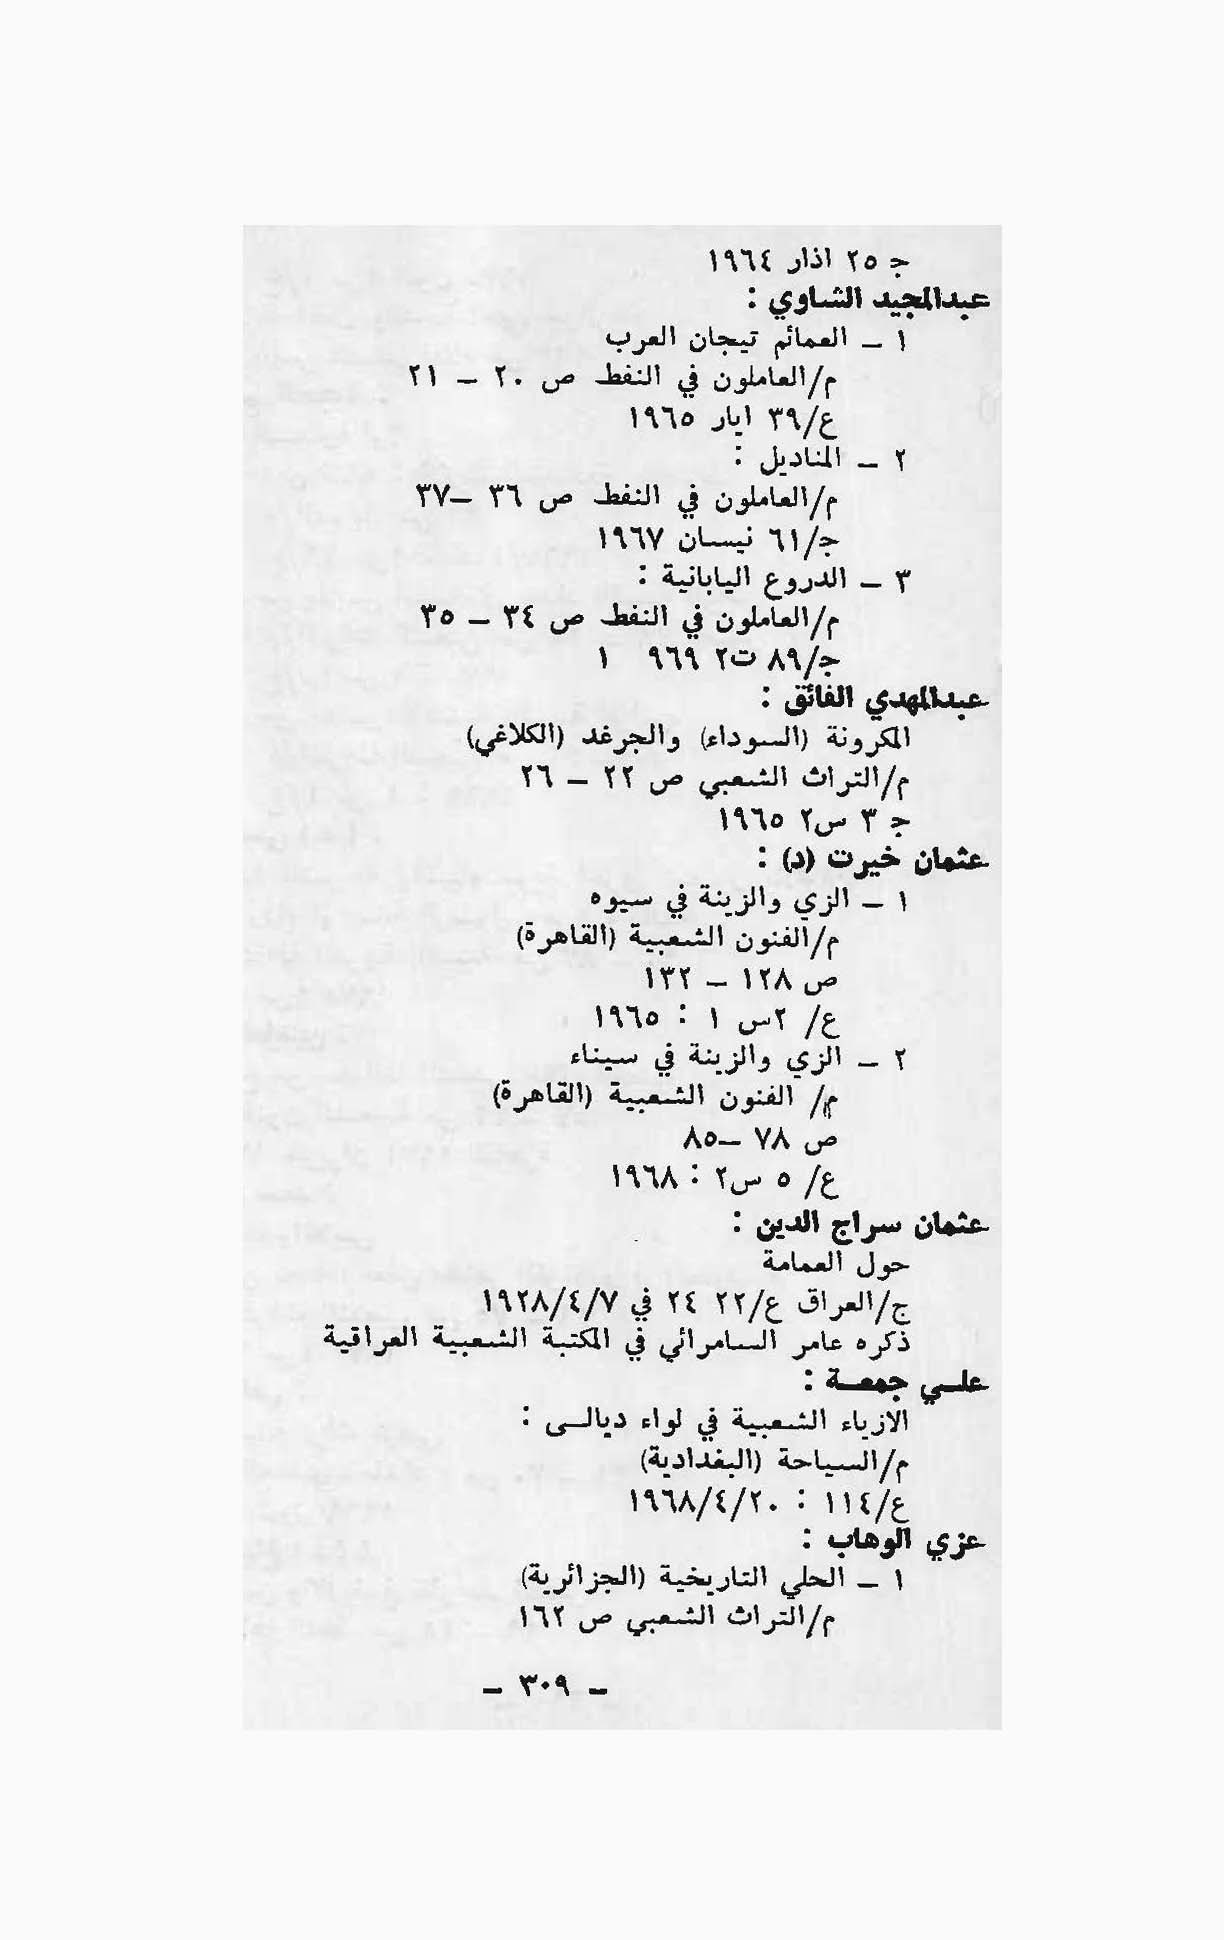 ج ٢٥ اذار ١٩٦٤
عبدالمجيد الشاوي :
١ – العمائم تيجان العرب
م/العاملون في النفط ص ٢٠ – ٢١
ع/٣٩ ايار ١٩٦٥
٢ – المناديل :
م/العاملون في النفط ص ٣٦ –٣٧
ج/٦١ نيسان ١٩٦٧
٣ – الدروع اليابانية :
م/العاملون في النفط ص ٣٤ – ٣٥
ج/٨٩ ت٢ ٩٦٩ ١
عبدالمهدي الفائق :
المكرونة (السوداء) والجرغد (الكلاغي)
م/التراث الشعبي ص ٢٢ – ٢٦
ج ٣ س٢ ١٩٦٥
عثمان خيرت (د) :
١ – الزي والزينة في سيوه
م/الفنون الشعبية (القاهرة)
ص ١٢٨ – ١٣٢
ع/ ٢س ١ : ١٩٦٥
٢ – الزي والزينة في سيناء
م/ الفنون الشعبية (القاهرة)
ص ٧٨ –٨٥
ع/ ٥ س٢ : ١٩٦٨
عثمان سراج الدين :
حول العمامة
ج/العراق ع/٢٢ ٢٤ في ١٩٢٨/٤/٧
ذكره عامر السامرائي في المكتبة الشعبية العراقية
علــي جمعــة :
الازياء الشعبية في لواء ديالــى :
م/السياحة (البغدادية)
ع/١١٤ : ١٩٦٨/٤/٢٠
عزي الوهاب :
١ – الحلي التاريخية (الجزائرية)
م/التراث الشعبي ص ١٦٢
– ٣٠٩ –